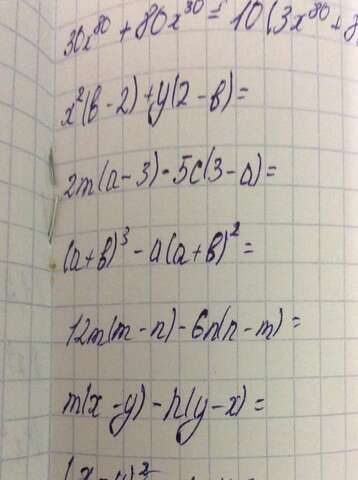 30x⁸⁰ + 80x³⁰ = 10(3x⁸⁰ + 8
x²(в - 2) + y(2 - в) =
2m(a - 3) - 5c(3 - a) =
(a + в)³ - a(a + в)² =
12m(m - n) - 6n(n - m) =
m(x - y) - n(y - x) =